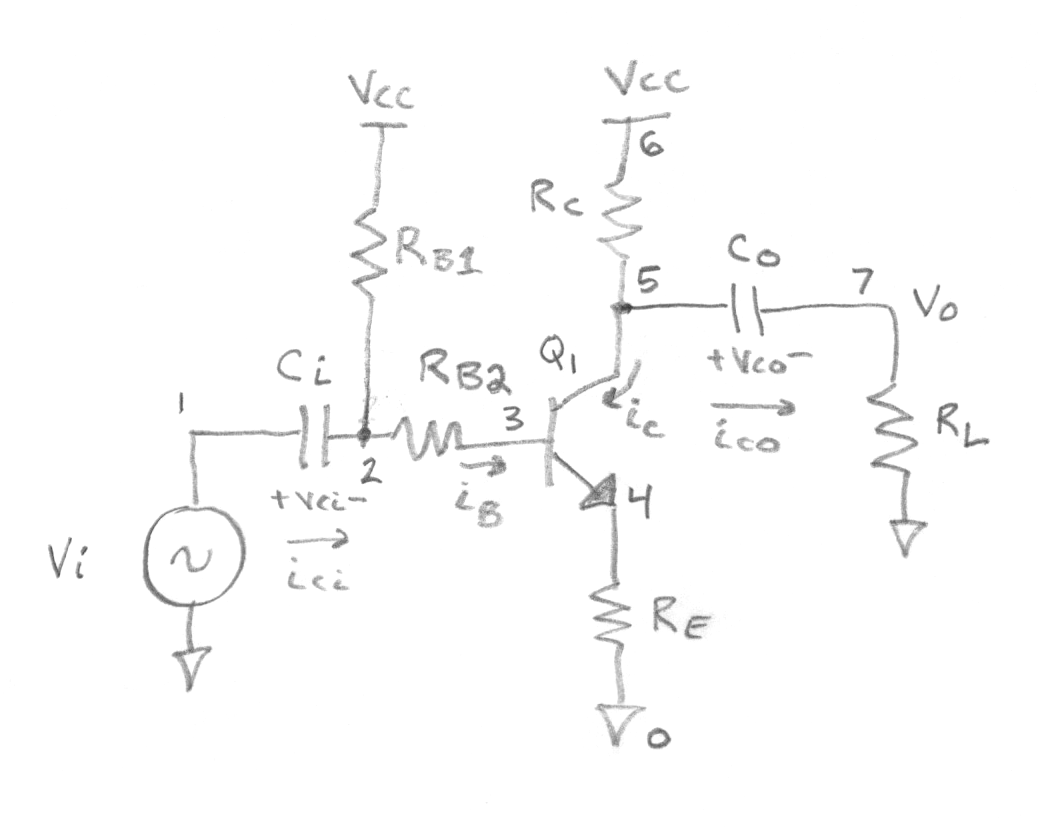 Vcc
Vcc
6
Rc
RB1
Co
5
7
Vo
Q1
+Vco-
Ci
RB2
1
3
ic
ico
RL
2
+Vci-
iB
4
Vi
ici
RE
0